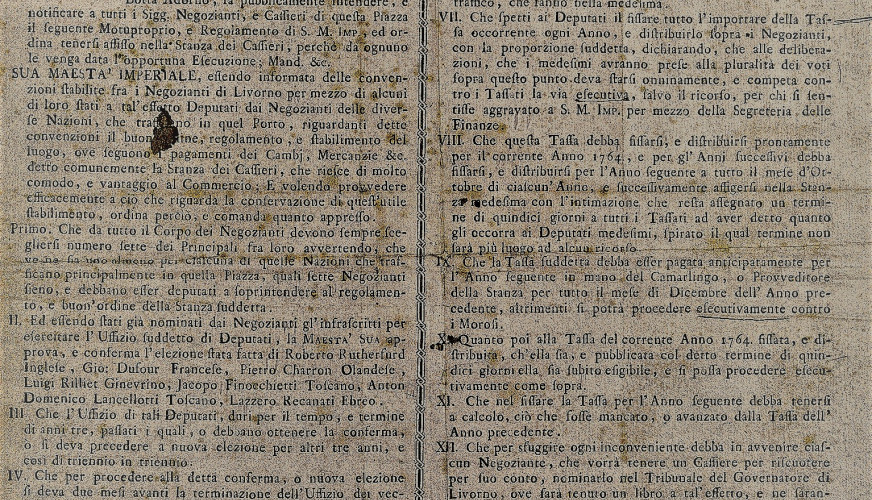 Botta Adorno, fa pubblicamente intendere, e
notificare a tutti i Sigg. Negozianti, e Cassieri di questa Piazza
il seguente Motuproprio, e Regolamento di S. M. IMP. ed or-
dina tenersi affisso nella Stanza dei Cassieri, perchè da ognuno
le venga data l'opportuna Esecuzione; Mand. &c.
SUA MAESTA' IMPERIALE, essendo informata delle conven-
zioni stabilite fra i Negozianti di Livorno per mezzo di alcuni
di loro stati a tal'effetto Deputati dai Negozianti delle diver-
se Nazioni, che in quel Porto, riguardanti dette
convenzioni il regolamento, e stabilimento del
luogo, ove seguono i pagamenti dei Cambj, Mercanzie &c.
detto comunemente la Stanza dei Cassieri, che riesce di molto
comodo, e vantaggio al Commercio; E volendo provvedere
efficacemente a ciò che riguarda la conservazione di quest'utile
stabilimento, ordina perciò, e comanda quanto appresso.
Primo. Che da tutto il Corpo dei Negozianti devono sempre sce-
gliersi numero sette dei Principali fra loro avvertendo, che
ve ne sia uno almeno per ciascuna di quelle Nazioni che traf-
ficano principalmente in quella Piazza, quali sette Negozianti
sieno, e debbano esser deputati a soprintendere al regolamen-
to, e buon'ordine della Stanza suddetta.
II. Ed essendo stati già nominati dai Negozianti gl'infrascritti per
esercitare l'Uffizio suddetto di Deputati, la MAESTA' SUA ap-
prova, e conferma l'elezione stata fatta di Roberto Rutherfurd
Inglese, Gio: Dufour Francese, Pietro Charron Olandese,
Luigi Rilliet Ginevrino, Jacopo Finocchietti Toscano, Anton
Domenico Lancellotti Toscano, Lazzero Recanati Ebreo.
III. Che l'Uffizio di tali Deputati, duri per il tempo, e termine
di anni tre, passati i quali, o debbano ottenere la conferma,
o si deva precedere a nuova elezione per altri tre anni, e
così di triennio in triennio.
IV. Che per procedere alla detta conferma, o nuova elezione
si deva due mesi avanti la terminazione dell'Uffizio dei vec-
traffico, che fanno nella medesima.
VII. Che spetti ai Deputati il fissare tutto l'importare della Tas-
sa occorrente ogni Anno, e distribuirlo sopra i Negozianti,
con la proporzione suddetta, dichiarando, che alle delibera-
zioni, che i medesimi avranno prese alla pluralità dei voti
sopra questo punto deva starsi onninamente, e competa con-
tro i Tassati la via esecutiva, salvo il ricorso, per chi si sen-
tisse aggravato a S. M. IMP. per mezzo della Segreteria delle
Finanze.
VIII. Che questa Tassa debba fissarsi, e distribuirsi prontamente
per il corrente Anno 1764, e per gl'Anni successivi debba
fissarsi, e distribuirsi per l'Anno seguente a tutto il mese d'Ot-
tobre di ciascun'Anno, e successivamente affigersi nella Stan-
za medesima con l'intimazione che resta assegnato un termi-
ne di quindici giorni a tutti i Tassati ad aver detto quanto
gli occorra ai Deputati medesimi, spirato il qual termine non
sarà più luogo ad alcun ricorso.
IX. Che la Tassa suddetta debba esser pagata anticipatamente per
l'Anno seguente in mano del Camarlingo, o Provveditore
della Stanza per tutto il mese di Dicembre dell'Anno pre-
cedente, altrimenti si potrà procedere esecutivamente contro
i Morosi.
X. Quanto poi alla Tassa del corrente Anno 1764. fissata, e di-
stribuita, ch'ella sia, e pubblicata col detto termine di quin-
dici giorni ella sia subito esigibile, e si possa procedere esecu-
tivamente come sopra.
XI. Che nel fissare la Tassa per l'Anno seguente debba tenersi
a calcolo, ciò che fosse mancato, o avanzato dalla Tassa dell'
Anno precedente.
XII. Che per sfuggire ogni inconveniente debba in avvenire cias-
cun Negoziante, che vorrà tenere un Cassiere per riscuotere
per suo conto, nominarlo nel Tribunale del Governatore di
Livorno, ove sarà tenuto un libro a tal'effetto, e ne saran-